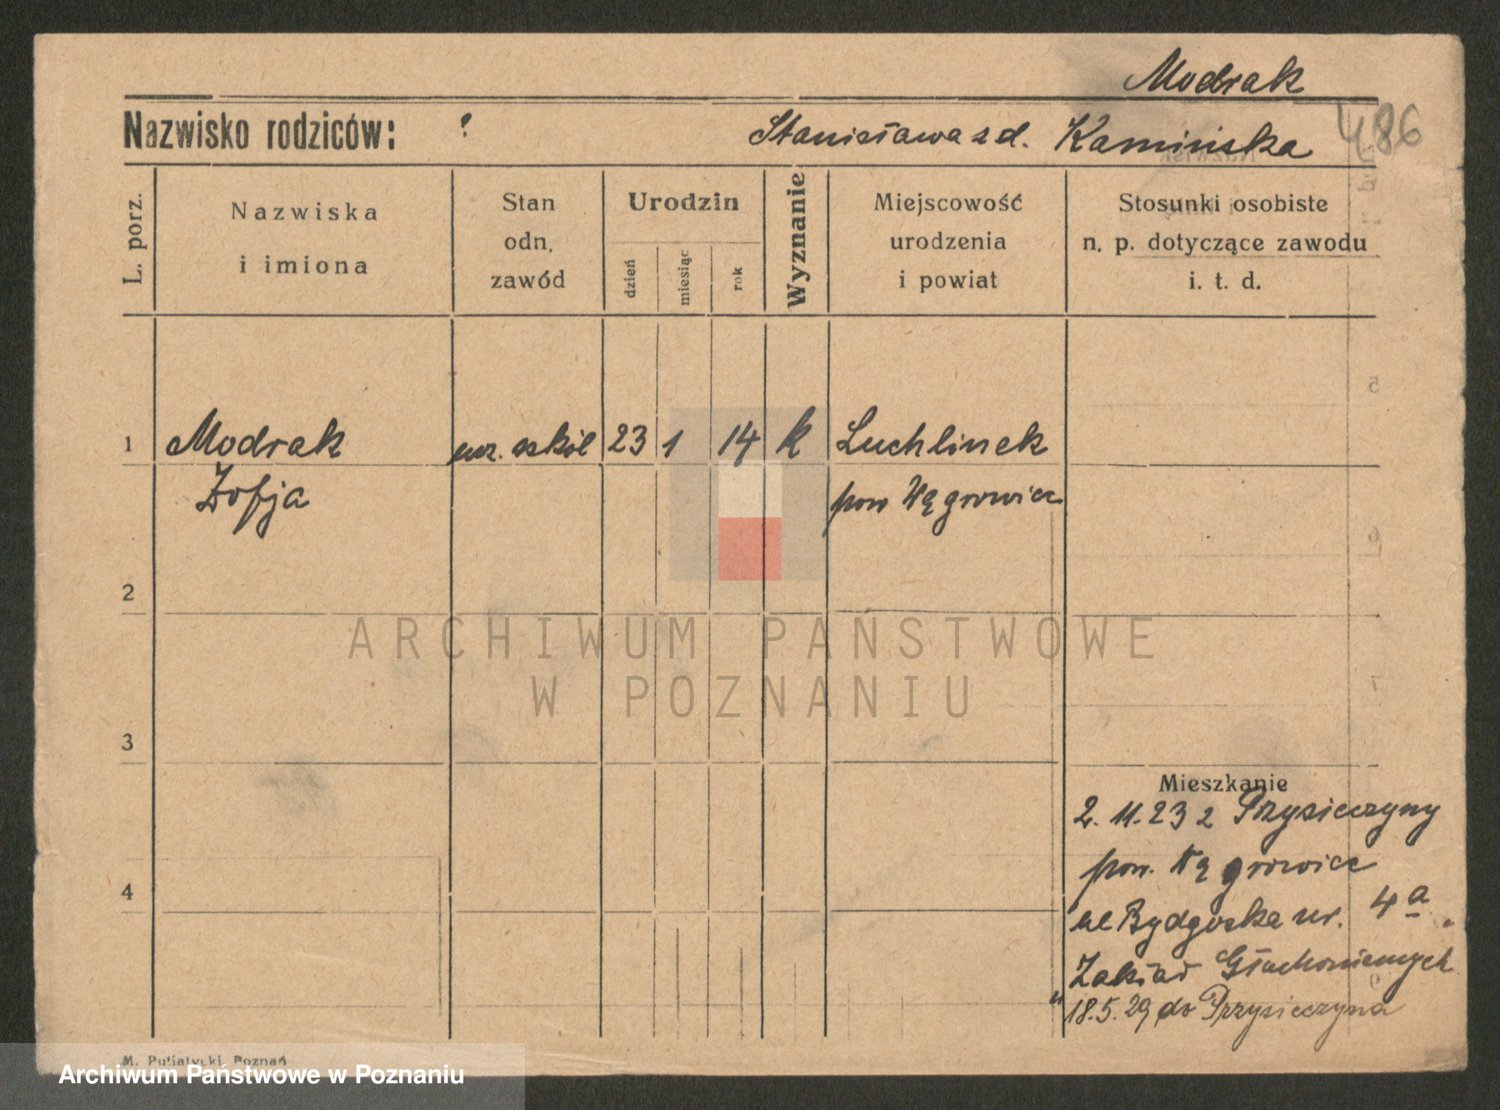 Modrak
Nazwisko rodziców: ? Stanisława z d. Kamińska 486
L. porz.
Nazwiska
i imiona
Stan
odn.
zawód
Urodzin
dzień
miesiąc
rok
Wyznanie
Miejscowość
urodzenia
i powiat
Stosunki osobiste
n. p. dotyczące zawodu
i. t. d.
1 Modrak ucz. szkół 23 1 14 k Luchlinek
Zofja pow Wągrowiec
2
ARCHIWUM PAŃSTWOWE
W POZNANIU
3
Mieszkanie
2. 11. 23 z Przysieczyny
pow. Wągrowiec
4
ul Bydgoska nr. 4a
Zakład Głuchoniemych
18. 5. 29 do Przysieczyna
M. Putiatycki, Poznań
Archiwum Państwowe w Poznaniu